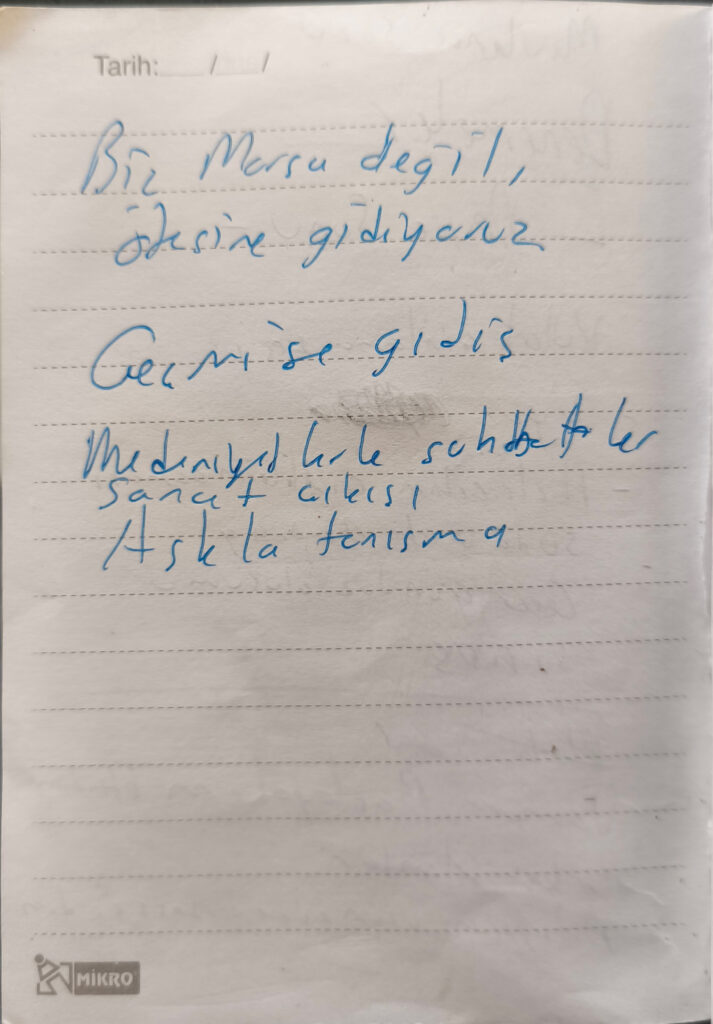 Tarih: / /
Biz Marsa değil,
ötesine gidiyoruz
Geçmişe gidiş
Medeniyetlerle sohbetler
sanat çıkışı
Aşkla tanışma
MİKRO